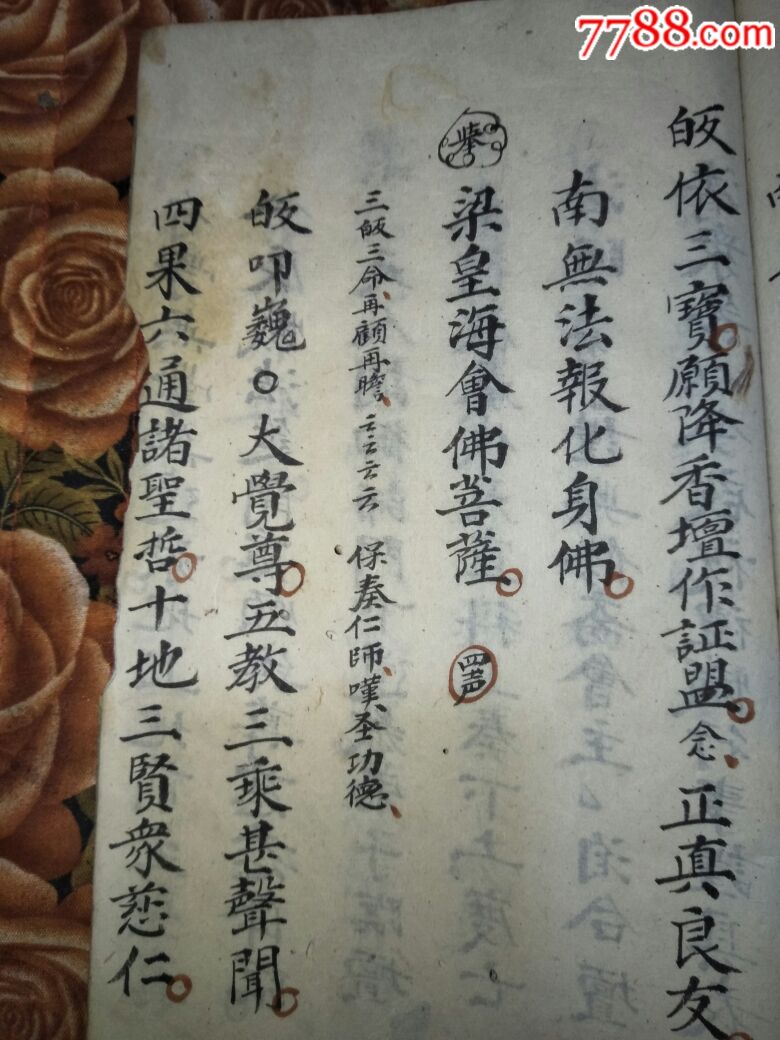 7788.com
皈依三寶。願降香壇作証盟。念、正真良友。
南無法報化身佛。
舉
梁皇海會佛菩薩。四声
三皈三命、再顧再瞻、云云云云 保奏仁師、嘆圣功德、
皈叩巍〇大覺尊。五教三乘甚聲聞。
四果六通諸聖哲。十地三賢衆慈仁。